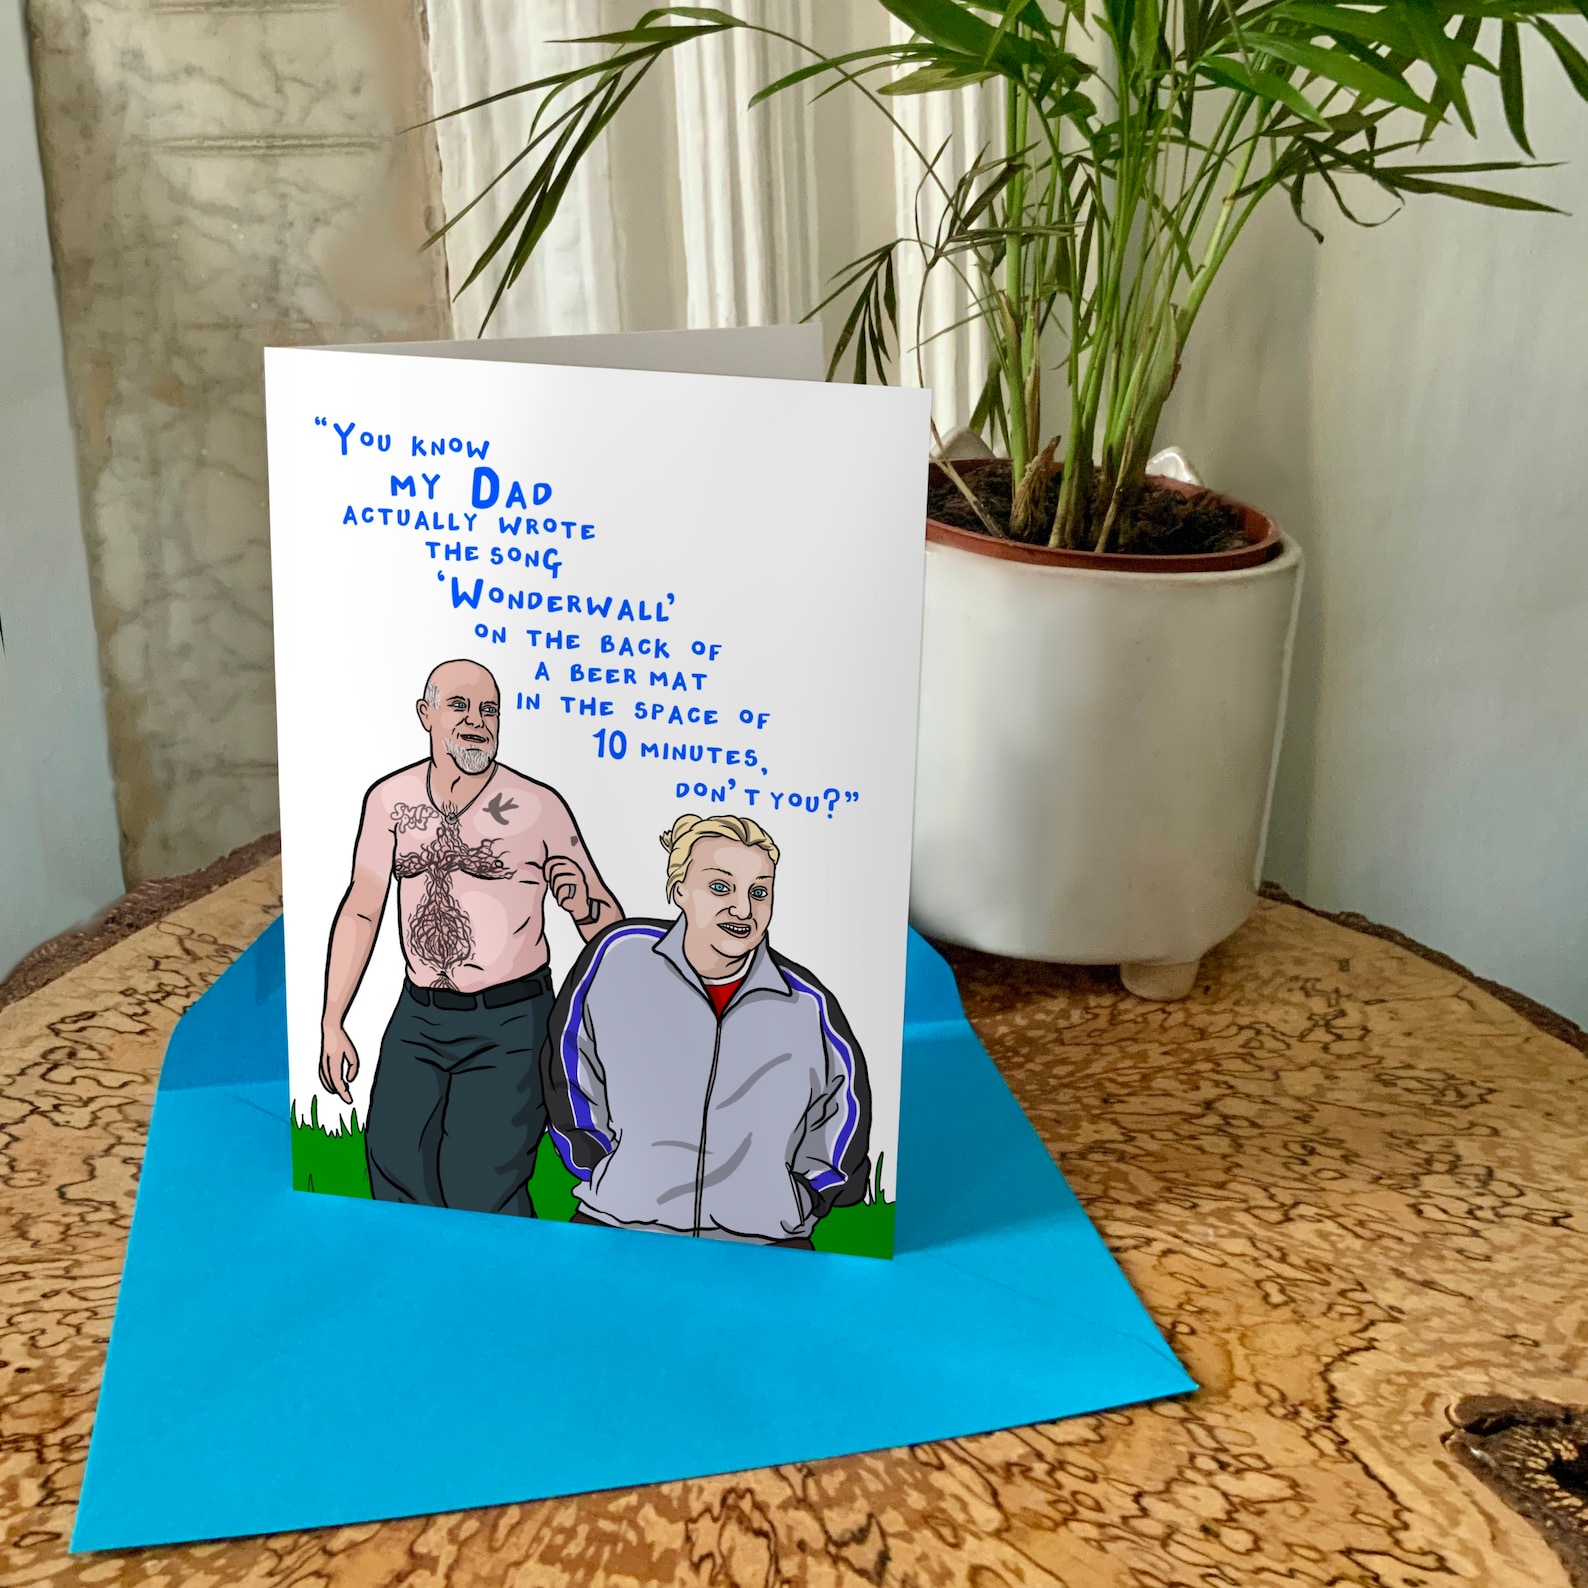 “You know
my Dad
actually wrote
the song
‘Wonderwall’
on the back of
a beer mat
in the space of
10 minutes,
don’t you?”